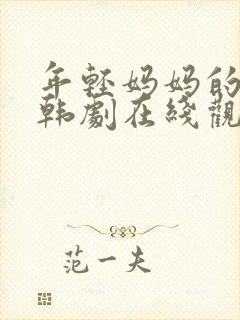 年轻妈妈的
韩劇在綫觀
范一夫